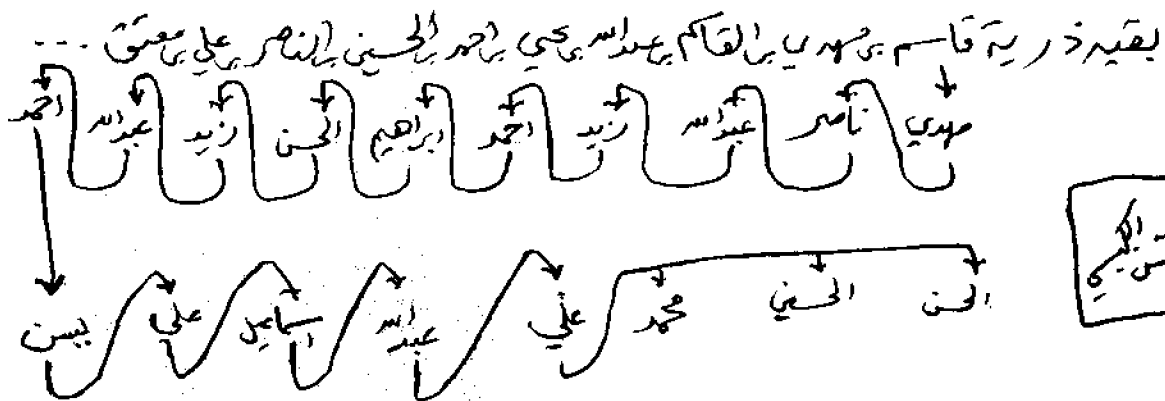 بقية ذرية قاسم بن مهدي بن القاسم بن عبدالله بن يحيى بن احمد بن الحسين بن الناصر بن علي بن معتق ...
مهدي ناصر عبدالله زيد احمد ابراهيم الحسن زيد عبدالله احمد
الحسن الحسين محمد علي عبدالله اسماعيل علي يسن